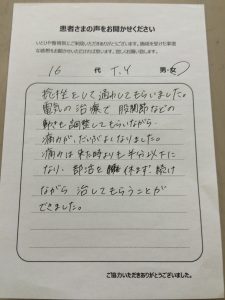 患者さまの声をお聞かせください
16 代 T.Y 男・女
をして通わしてもらいました。
電気の治療で股関節などの
動きも調整してもらいながら
痛みが、だいぶよくなりました。
痛みは来た時よりも半分以下に
なり、部活を休まず、続け
ながら治してもらうことが
できました。
ご協力いただきありがとうございました。